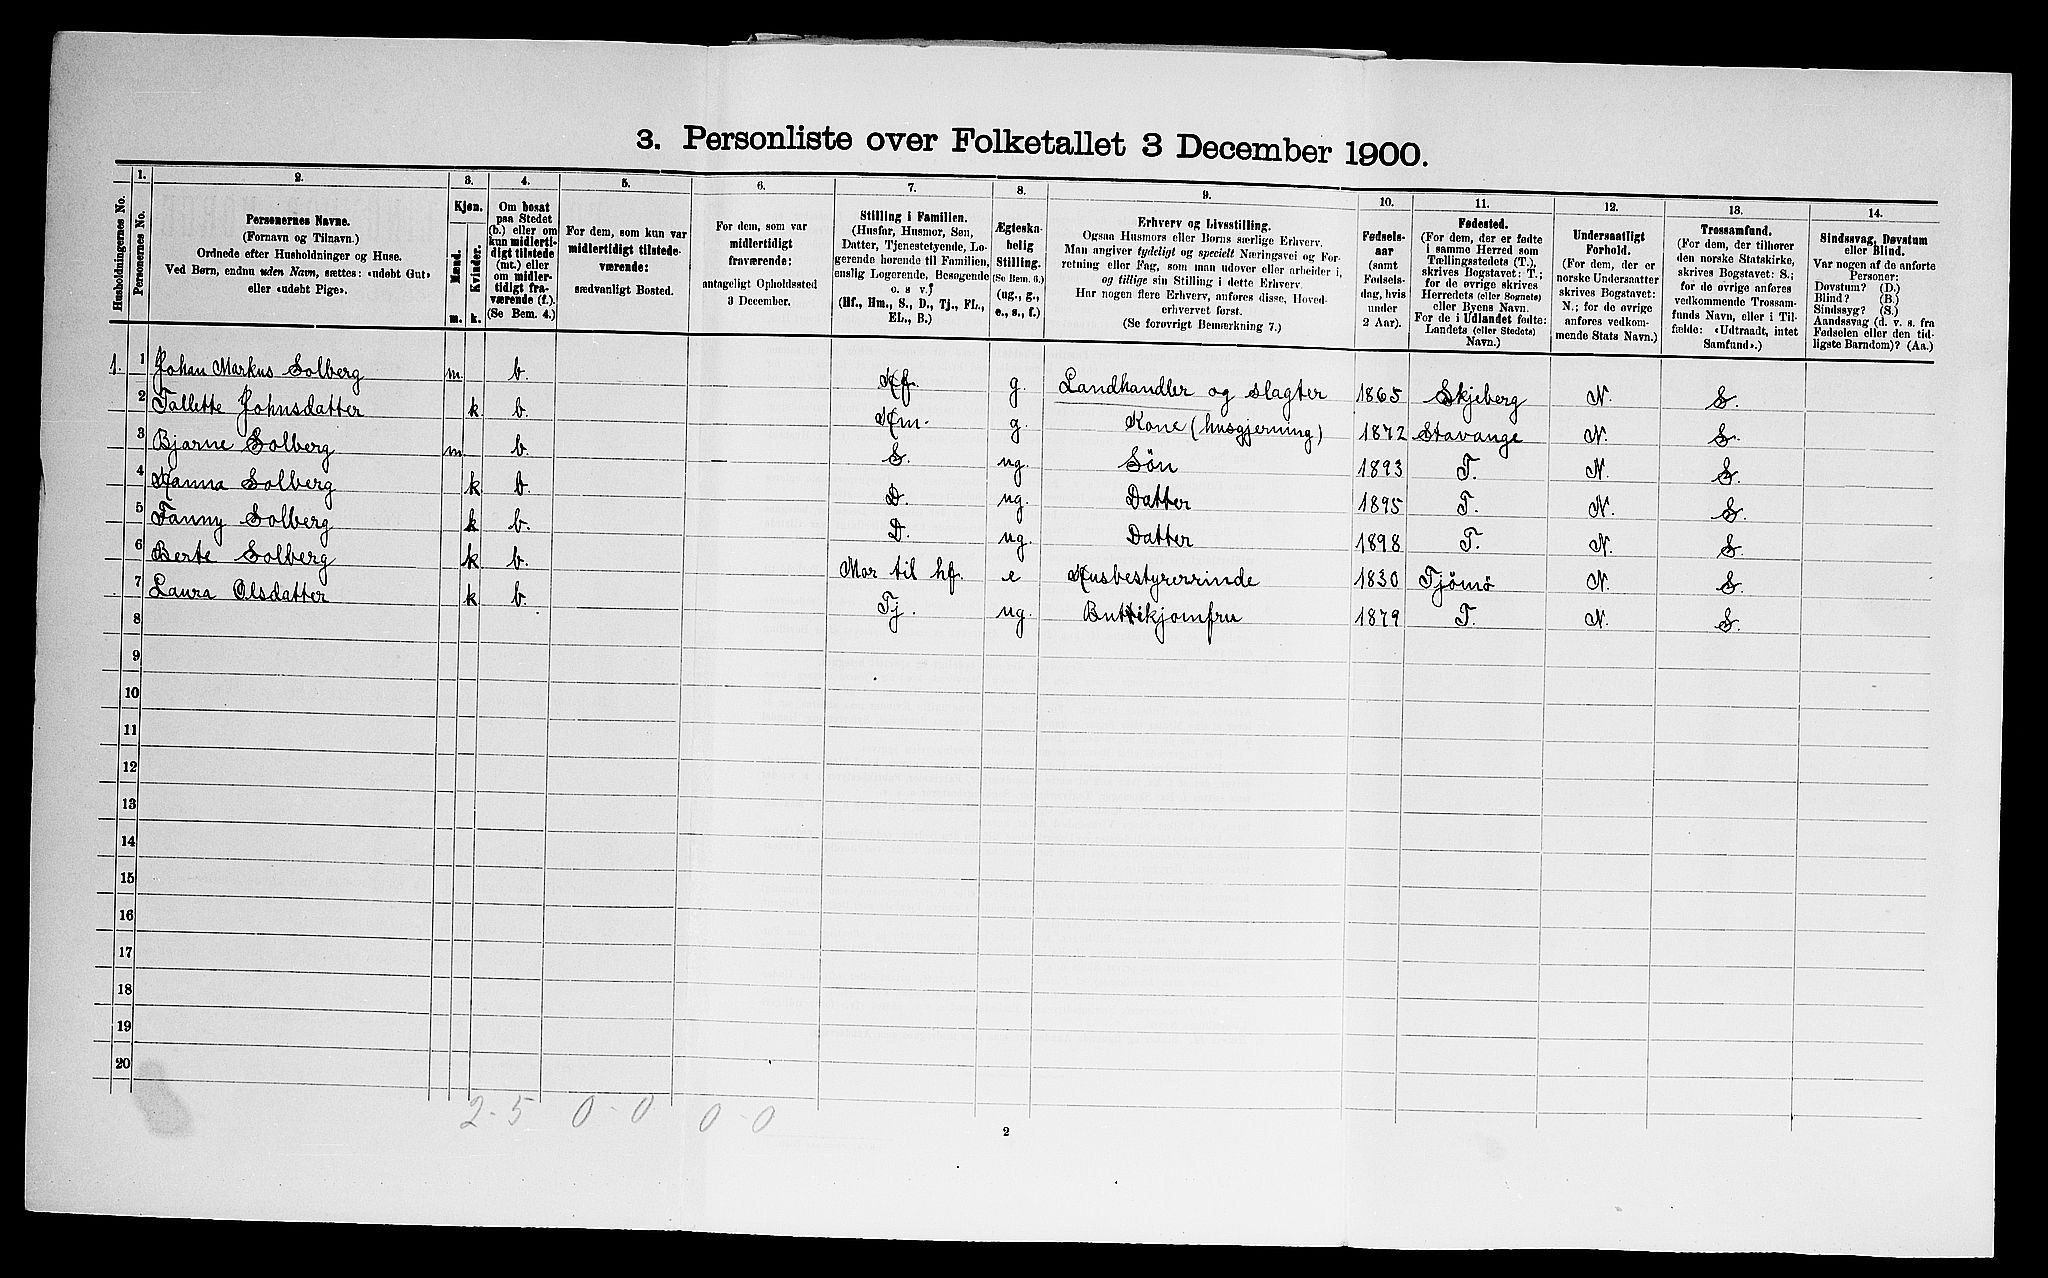 3. Personliste over Folketallet 3 December 1900.
Husholdningernes No.
1. Personernes No.
2.
Personernes Navne.
(Fornavn og Tilnavn.)
Ordnede efter Husholdninger og Huse.
Ved Børn, endnu uden Navn, sættes: «udøbt Gut»
eller «udøbt Pige».
3.
Kjøn.
Mænd.
Kvinder.
m. k.
4.
Om bosat
paa Stedet
(b.) eller om
kun midlerti-
digt tilstede
(mt.) eller
om midler-
tidigt fra-
værende (f.).
(Se Bem. 4.)
5.
For dem, som kun var
midlertidigt tilstede-
værende:
sædvanligt Bosted.
6.
For dem, som var
midlertidigt
fraværende:
antageligt Opholdssted
3 December.
7.
Stilling i Familien.
(Husfar, Husmor, Søn,
Datter, Tjenestetyende, Lo-
gerende hørende til Familien,
enslig Logerende, Besøgende
o. s v.)
(Hf., Hm., S., D., Tj., FL.,
EL., B.)
8.
Ægteska-
belig
Stilling.
(Se Bem. 6.)
(ug., g.,
e., s., f.)
9.
Erhverv og Livsstilling.
Ogsaa Husmors eller Børns særlige Erhverv.
Man angiver tydeligt og specielt Næringsvei og For-
retning eller Fag, som man udøver eller arbeider i,
og tillige sin Stilling i dette Erhverv.
Har nogen flere Erhverv, anføres disse, Hoved-
erhvervet først.
(Se forøvrigt Bemærkning 7.)
10.
Fødsels-
aar
(samt
Fødsels-
dag, hvis
under
2 Aar).
11.
Fødested.
(For dem, der er fødte
i samme Herred som
Tællingsstedets (T.),
skrives Bogstavet: T.;
for de øvrige skrives
Herredets (eller Sognets)
eller Byens Navn.
For de i Udlandet fødte:
Landets (eller Stedets)
Navn.)
12.
Undersaatligt
Forhold.
(For dem, der er
norske Undersaatter
skrives Bogstavet:
N.; for de øvrige
anføres vedkom-
mende Stats Navn.)
13.
Trossamfund.
(For dem, der tilhører
den norske Statskirke,
skrives Bogstavet: S.;
for de øvrige anføres
vedkommende Trossam-
funds Navn, eller i Til-
fælde: «Udtraadt, intet
Samfund».)
14.
Sindssvag, Døvstum
eller Blind.
Var nogen af de anførte
Personer:
Døvstum? (D.)
Blind? (B.)
Sindssyg? (S.)
Aandssvag (d. v. s. fra
Fødselen eller den tid-
ligste Barndom)? (Aa.)
1. 1 Johan Markus Solberg m. b. Hf. g. Landhandler og slagter 1865 Skjeberg N. S.
2 Tallette Johnsdatter k b. Hm. g. Kone (husgjerning) 1872 Stavange N. S.
3 Bjarne Solberg m b. S. ug. Søn 1893 T. N. S.
4 Hanna Solberg k b. D. ug. Datter 1895 T. N. S.
5 Fanny Solberg k b. D. ug. Datter 1898 T. N. S.
6 Berte Solberg k b. Mor til hf. e Husbestyrerrinde 1830 Tjömö N. S.
7 Laura Olsdatter k b. Tj. ug. Buttikjomfru 1879 T. N. S.
8
9
10
11
12
13
14
15
16
17
18
19
20
2-5 0-0 0-0
2